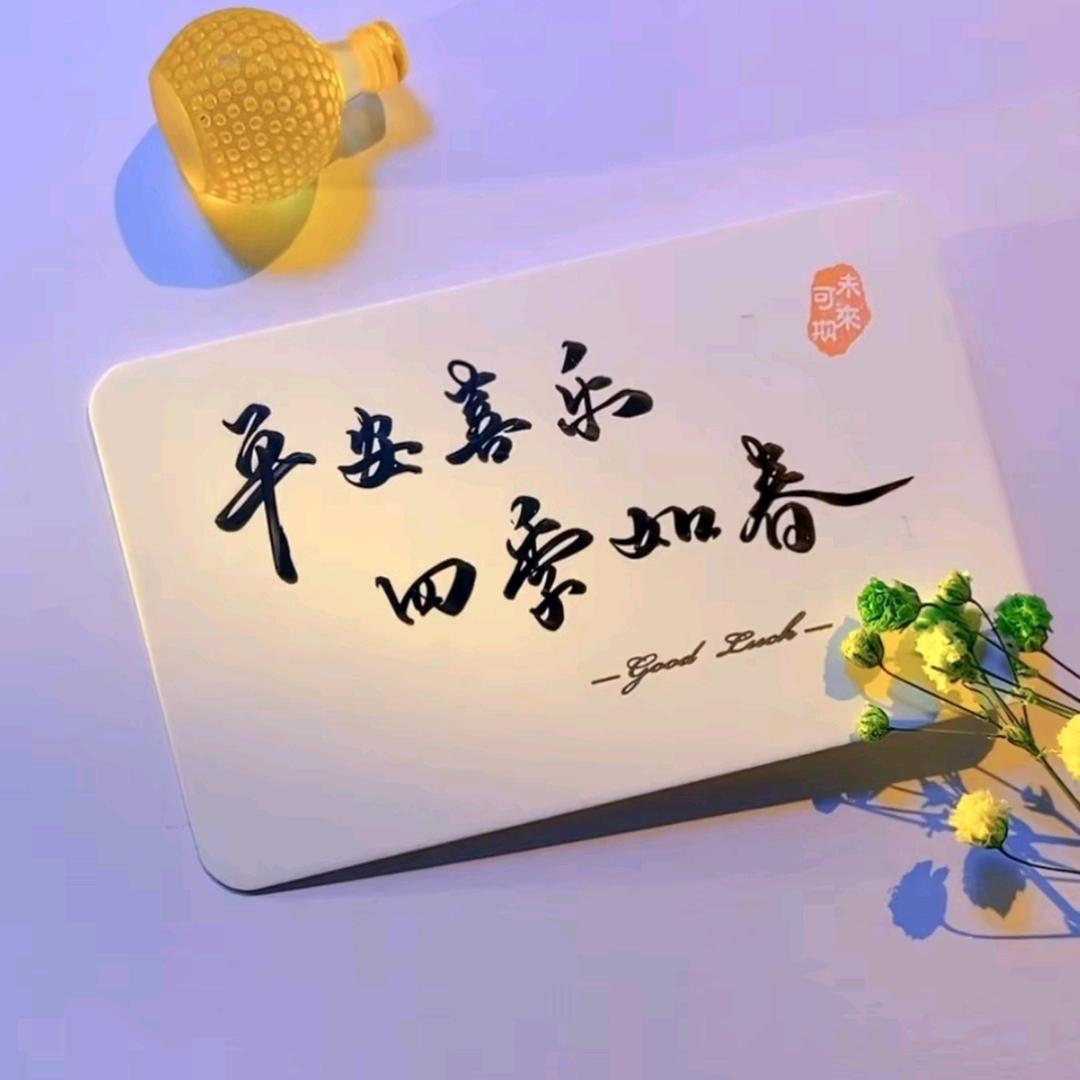 平安喜乐
四季如春
—Good Luck—
未來
可期